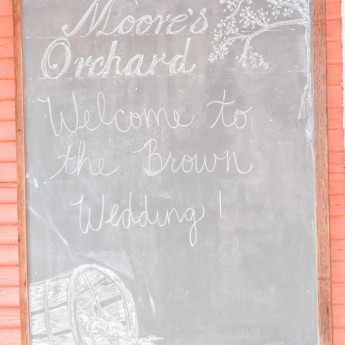 Moore's
Orchard
Welcome to
the Brown
Wedding!